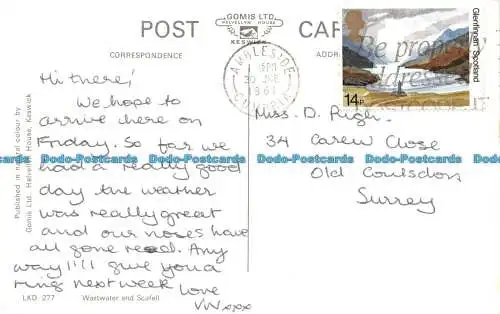 POST CARD
GOMIS LTD.
HELVELLYN HOUSE
KESWICK
CORRESPONDENCE
ADDRESS
AMBLESIDE
CUMBRIA
Glenfinnan, Scotland
14P
Be properly
addressed
Hi there,
We hope to
arrive here on
Friday. So far we
had a really good
day the weather
was really great
and our noses have
all gone red. Any
way I'll give you a
ring next week
Love
xxx
Miss. D.
34 Carew Close
Old Coulsdon
Surrey
Published in natural colour by
Gomis Ltd. Helvellyn House, Keswick
LKD 277 Wastwater and Scafell
Dodo-Postcards Dodo-Postcards Dodo-Postcards Dodo-Postcards Dodo-Postcards